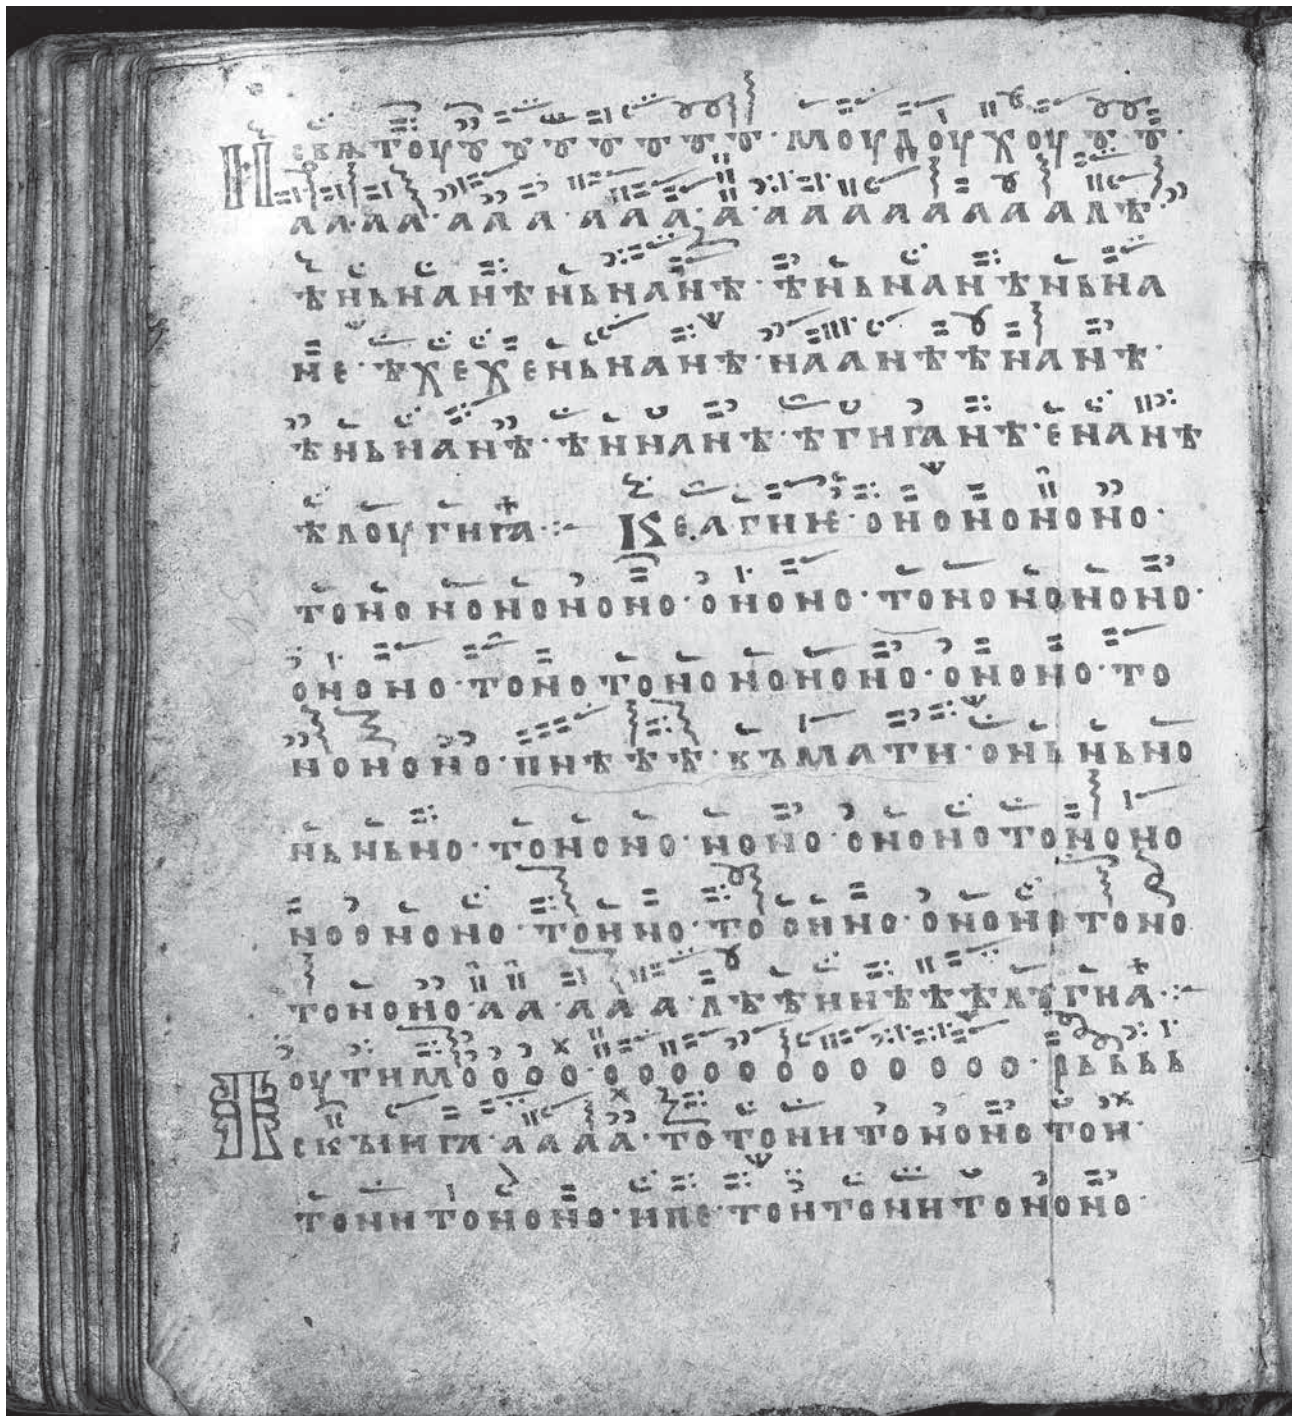 Н свѧтоуꙋ ꙋ ꙋ ꙋ ꙋ ꙋ ꙋ · моуд оу хоу ꙋ ꙋ ·
а а · а а · а а а · а а а · а · а а а а а а а а а лѣ ·
ѣ н ь н а н ѣ н ь н а н ѣ · ѣ н ь н а н ѣ н ь н а
н е · ѣ х е х е н ь н а н ѣ · н а а н ѣ ѣ н а н ѣ ·
ѣ н ь н а н ѣ · ѣ н н а н ѣ · ѣ г н г а н ѣ · е н а н ѣ
ѣ л о у г и ꙗ ·:– е а г и ѥ · о н о н о н о н о ·
т о н о н о н о н о н о · о н о н о · т о н о н о н о н о ·
о н о н о · т о н о т о н о н о н о н о · о н о н о · т о
н о н о н о · п и ѣ ѣ ѣ · к ъ м а т и · о н ь н ь н о
н ь н ь н о · т о н о н о · н о н о · о н о н о т о н о н о
н о о н о н о · т о н н о · т о о н н о · о н о н о т о н о
т о н о н о · а а · а а а · л ѣ ѣ н н ѣ ѣ ѣ л ꙋ г и а ·:–
П оу т и м о о о о о · о о о о о о о о о о о о · р ь ь ь ь
е к ъ і и ꙗ · а а а а · т о т о н и т о н о н о т о н ·
т о н и т о н о н о н о · и п е · т о н т о н и т о н о н о ·